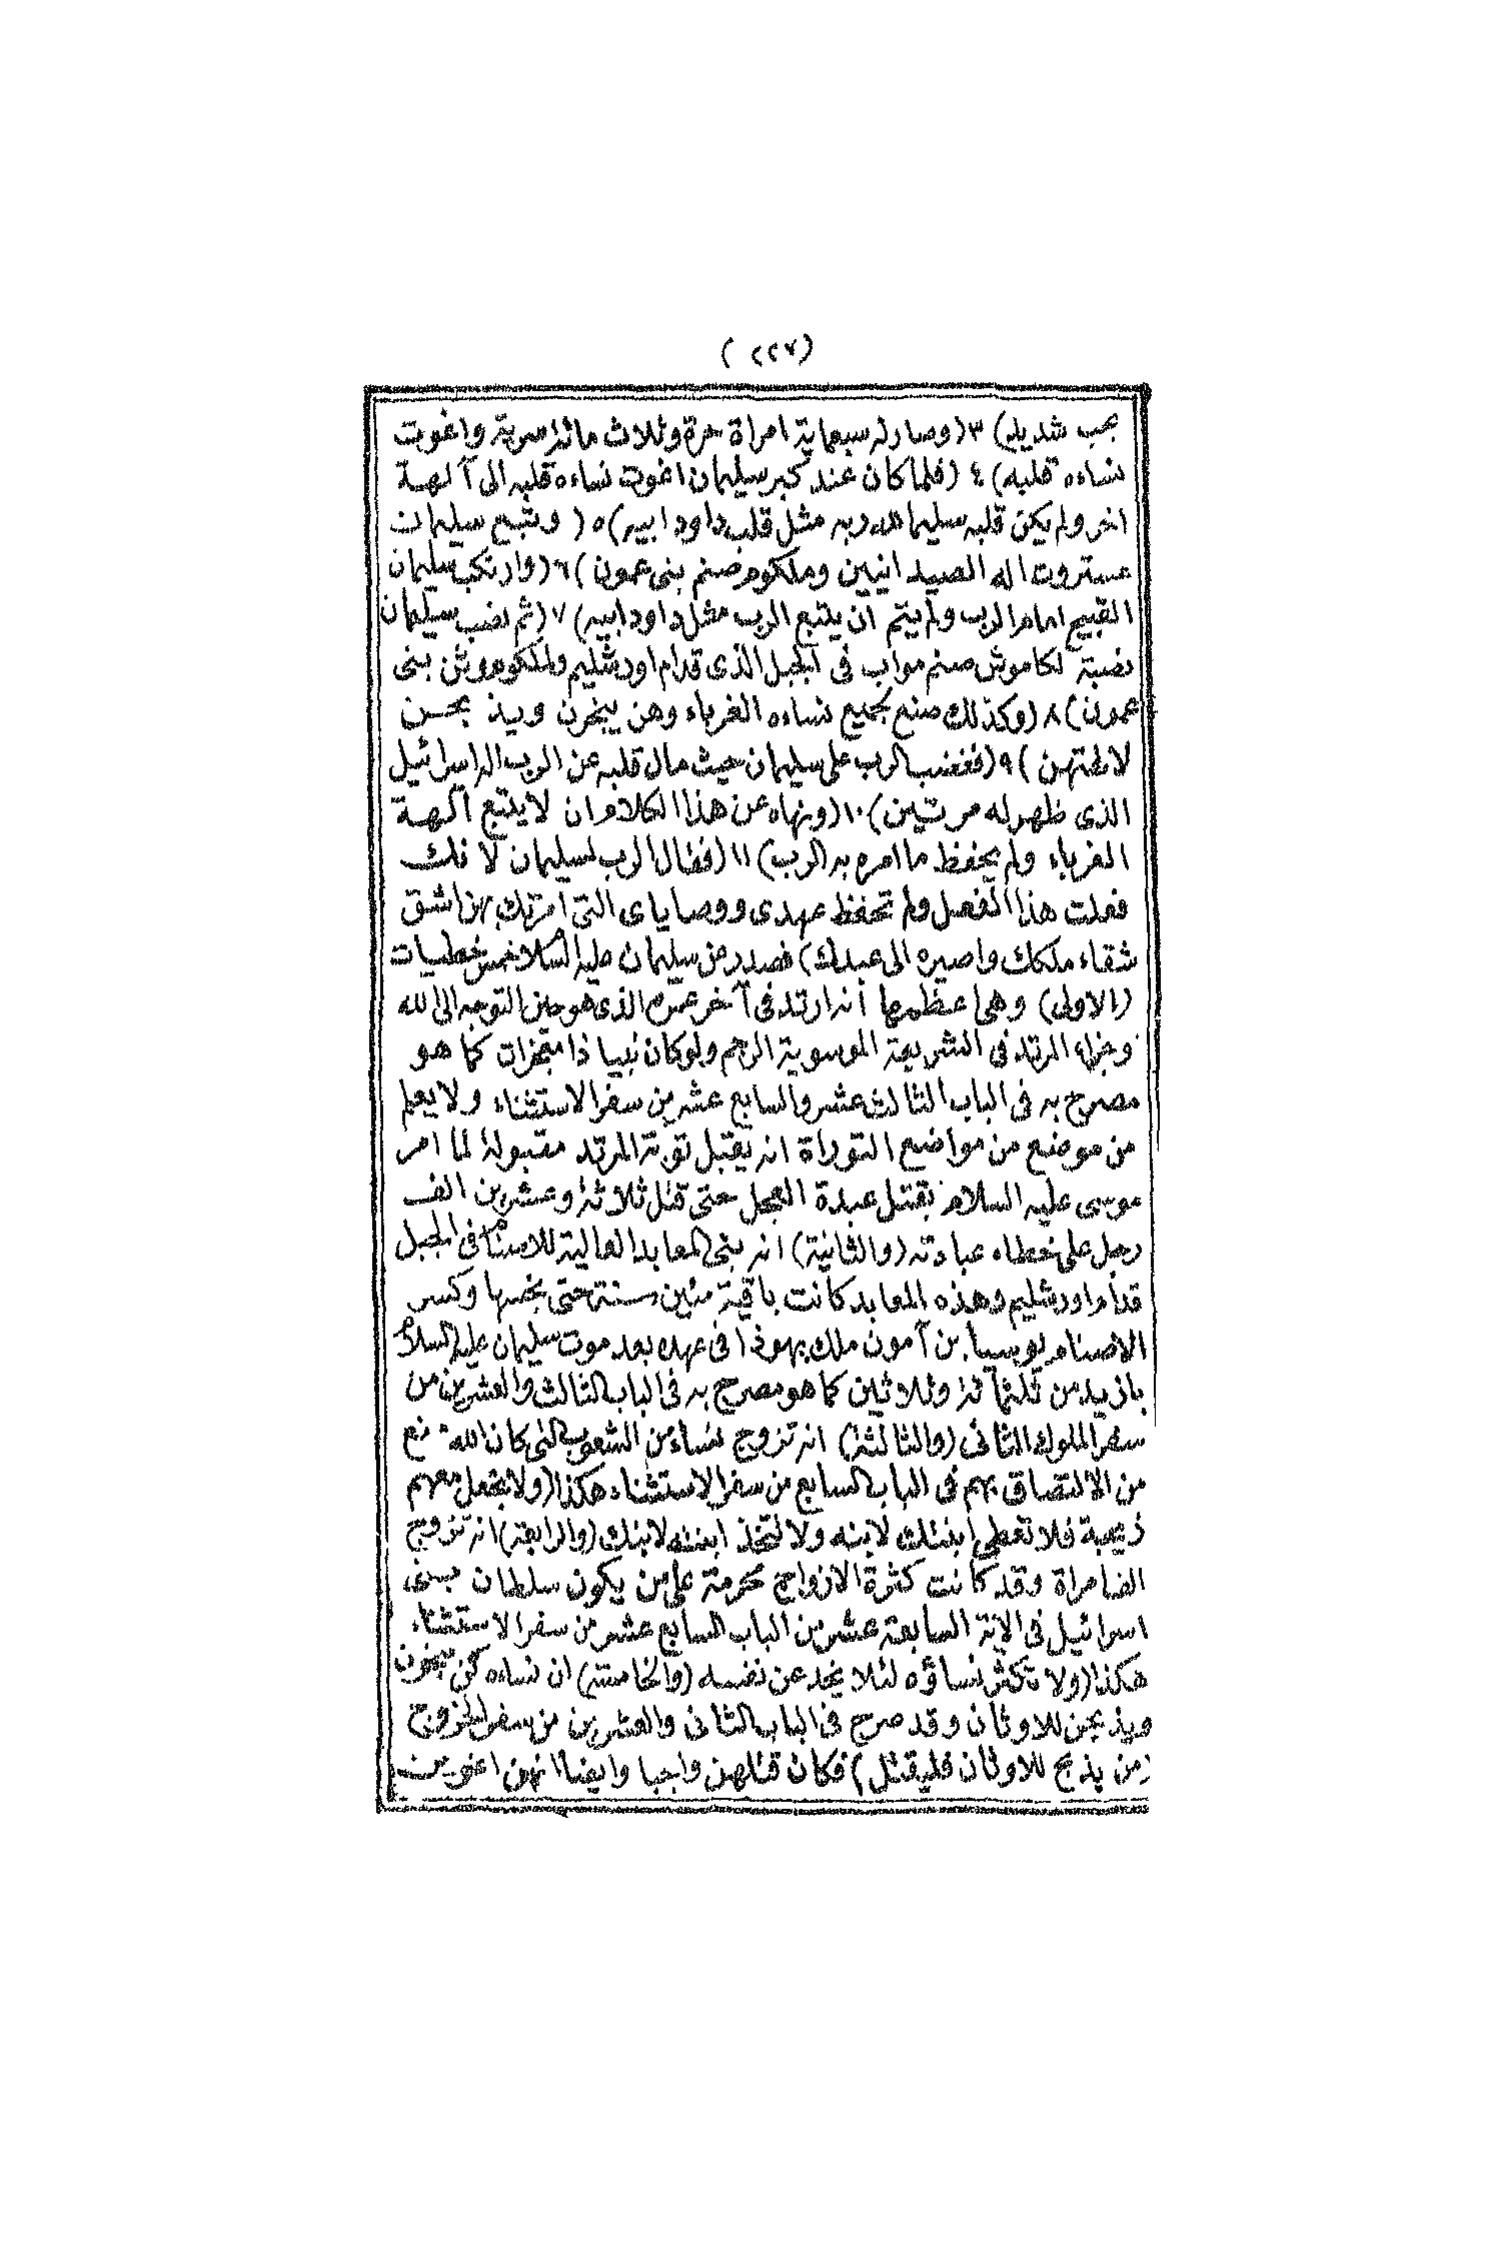 (٢٢٧)
بحب شديد) ٣ (وصار له سبعماية امراة حرة وثلاث مائة سرية واغوت
نساءه قلبه) ٤ (فلما كان عند كبر سليمان اغوت نساءه قلبه الى آلهة
اخر ولم يكن قلبه سليما لله ربه مثل قلب داود ابيه) ٥ (وتبع سليمان
عستروت اله الصيدانيين وملكوم صنم بنى عمون) ٦ (وارتكب سليمان
القبيح امام الرب ولم يتم ان يتبع الرب مثل داود ابيه) ٧ (ثم نصب سليمان
نصبة لكاموش صنم مواب فى الجبل الذى قدام اورشليم ولملكوم وثن بنى
عمون) ٨ (وكذلك صنع لجميع نساءه الغرباء وهن يبخرن ويذبحن
لالهتهن) ٩ (فغضب الرب على سليمان حيث مال قلبه عن الرب اله اسرائيل
الذى ظهر له مرتين) ١٠ (ونهاه عن هذا الكلام ان لا يتبع آلهة
الغرباء ولم يحفظ ما امره به الرب) ١١ (فقال الرب لسليمان لانك
فعلت هذا الفعل ولم تحفظ عهدى ووصاياى التى امرتك بهن اشق
شقاء ملكك واصيره الى عبدك) فصدر من سليمان عليه السلام خمس خطيات
(الاولى) وهى اعظمها انه ارتد فى آخر عمره الذى هو حين التوجه الى الله
وجزاء المرتد فى الشريعة الموسوية الرجم ولو كان نبيا ذا معجزات كما هو
مصرح به فى الباب الثالث عشر والسابع عشر من سفر الاستثناء ولا يعلم
من موضع من مواضع التوراة انه يقبل توبة المرتد مقبولة لما امر
موسى عليه السلام بقتل عبدة العجل حتى قتل ثلاثة وعشرين الف
رجل على خطاء عبادته (والثانية) انه بنى المعابد العالية للاصنام فى الجبل
قدام اورشليم وهذه المعابد كانت باقية مئين سنة حتى نجسها وكسر
الاصنام يوسيا بن آمون ملك يهوذا فى عهده بعد موت سليمان عليه السلام
بازيد من ثلثمائة وثلاثين كما هو مصرح به فى الباب الثالث والعشرين من
سفر الملوك الثانى (والثالثة) انه تزوج نساء من الشعوب التى كان الله منع
من الالتصاق بهم فى الباب السابع من سفر الاستثناء هكذا (ولا تجعل معهم
زيجة فلا تعطى ابنتك لابنه ولا تتخذ ابنته لابنك (والرابعة) انه تزوج
الف امراة وقد كانت كثرة الازواج محرمة على من يكون سلطان بنى
اسرائيل فى الاية السابعة عشر من الباب السابع عشر من سفر الاستثناء
هكذا (ولا تكثر نساؤه لئلا يخدعن نفسه (والخامسة) ان نساءه كن يبخرن
ويذبحن للاوثان وقد صرح فى الباب الثانى والعشرين من سفر الخروج
(من يذبح للاوثان فليقتل) فكان قتلهن واجبا وايضا انهن اغوين